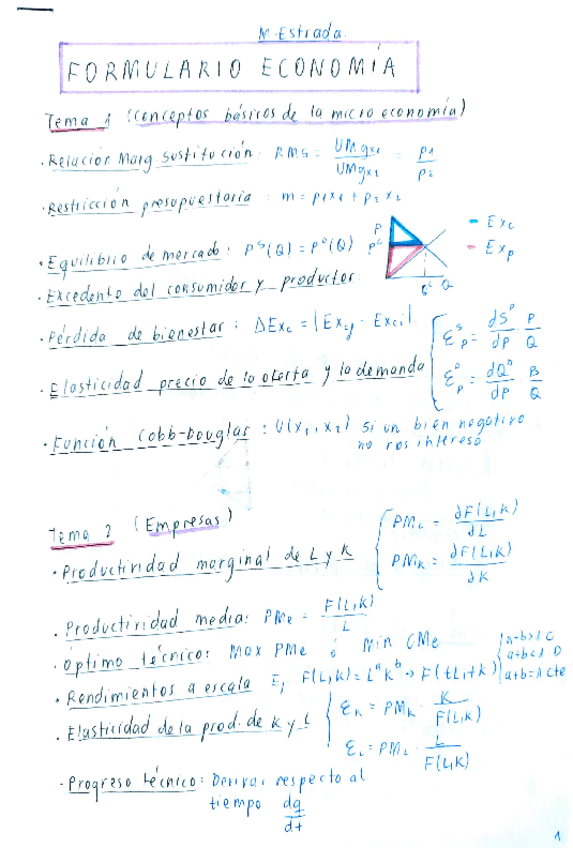 M. Estrada.
FORMULARIO ECONOMÍA
Tema 1 (Conceptos básicos de la microeconomía)
· Relación Marg. Sustitución: RMS: UMgx1 / UMgx2 = p1 / p2
· Restricción presupuestaria : m = p1x1 + p2x2
P
Pe
Qe Q
- Exc
- Exp
· Equilibrio de mercado. pS(Q) = pD(Q)
· Excedente del consumidor y productor
· Pérdida de bienestar : ΔExc = |Excf - Exci|
· Elasticidad precio de la oferta y la demanda { ƐSp = dSP/dP · P/Q
ƐDp = dQD/dP · P/Q
· Función Cobb-Douglas : U(x1, x2) Si un bien negativo
no nos interesa
Tema 2 (Empresas)
· Productividad marginal de L y K { PML = ∂F(L,K) / ∂L
PMK = ∂F(L,K) / ∂K
· Productividad media: PMe = F(L,K) / L
· Óptimo técnico: Max PMe ó Min CMe
· Rendimientos a escala Ej F(L,K) = LaKb → F(tL,tK) | a+b>1 C
a+b<1 D
a+b=1 cte
· Elasticidad de la prod. de K y L { ƐK = PMK · K / F(L,K)
ƐL = PML · L / F(L,K)
· Progreso técnico: Derivar respecto al
tiempo dq/dt
1